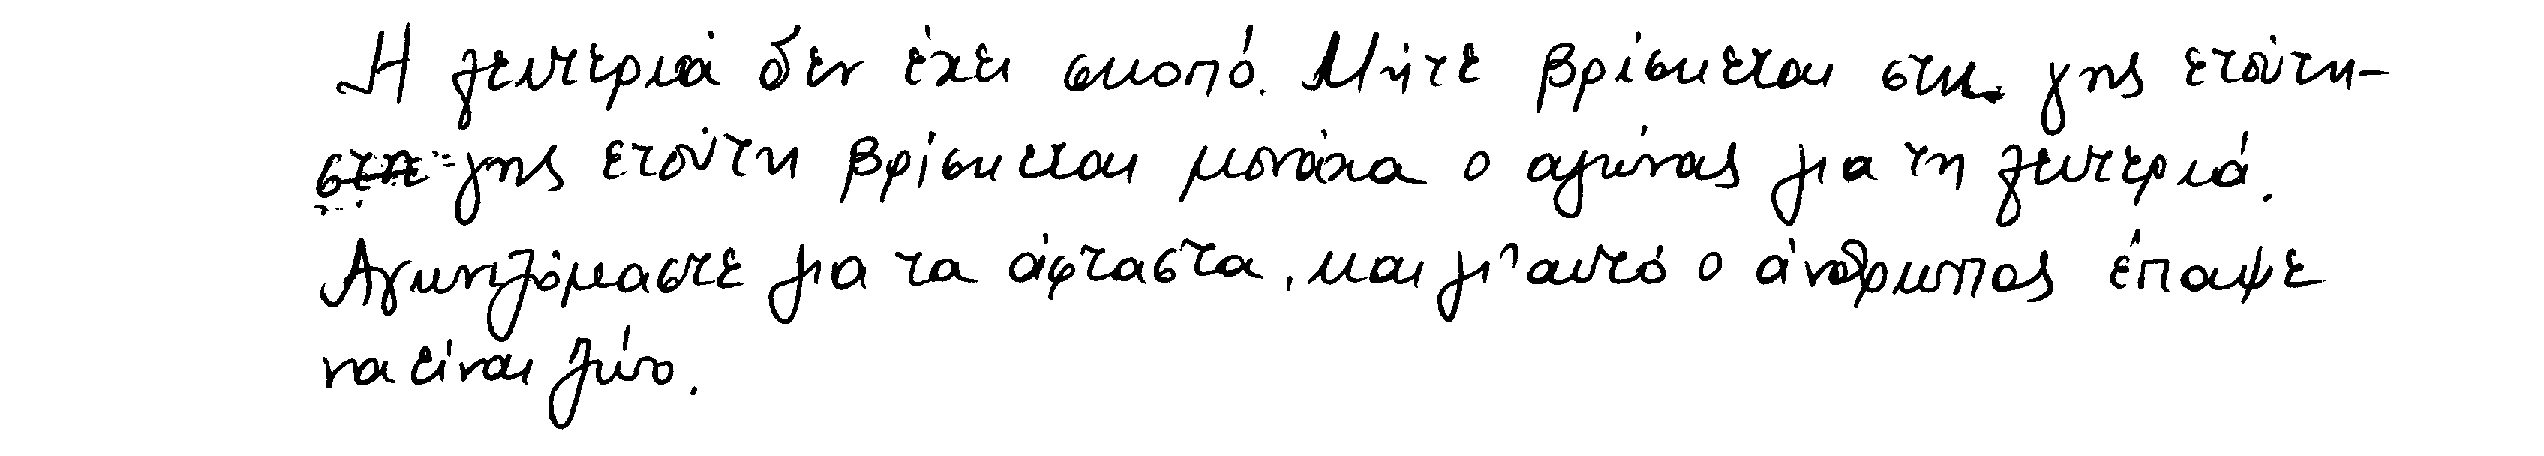 Η λευτεριά δεν έχει σκοπό. Μήτε βρίσκεται στη γης ετούτη-
γης ετούτη βρίσκεται μονάχα ο αγώνας για τη λευτεριά.
Αγωνιζόμαστε για τα άφταστα, και γι' αυτό ο άνθρωπος έπαψε
να είναι ζώο.